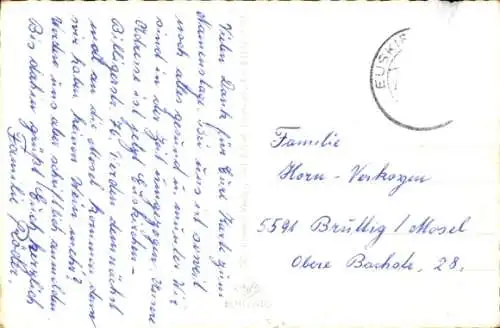 Vielen Dank für Eure Karte zum
Namenstag. Bei uns ist soweit
noch alles gesund u. munter. Wir
sind in der Zeit umgezogen. Unsere
Adresse ist jetzt Euskirchen-
Billigerstr. 76. Werden demnächst
mal an die Mosel kommen, denn
wir haben keinen Wein mehr?
Werden uns aber schriftlich anmelden.
Bis dahin grüßt Euch herzlich
Familie
EUSKIR
Familie
Horn-
5591 Bruttig/Mosel
Obere Bachstr. 28.